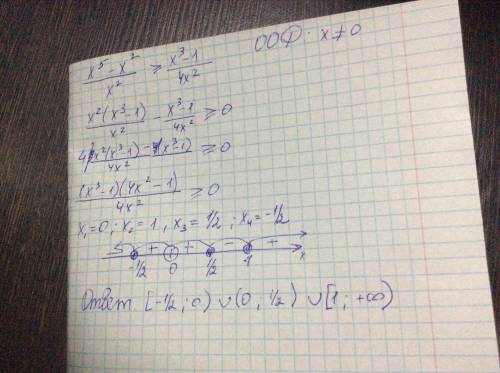 (x⁵ - x²)/x² ≥ (x³-1)/4x² ООФ: x ≠ 0
x²(x³-1)/x² - (x³-1)/4x² ≥ 0
(4x²(x³-1) - (x³-1))/4x² ≥ 0
(x³-1)(4x²-1)/4x² ≥ 0
x₁=0; x₂=1, x₃=1/2; x₄=-1/2
- + + - +
-1/2 0 1/2 1 x
Ответ. [-1/2; 0) ∪ (0; 1/2) ∪ [1; +∞)